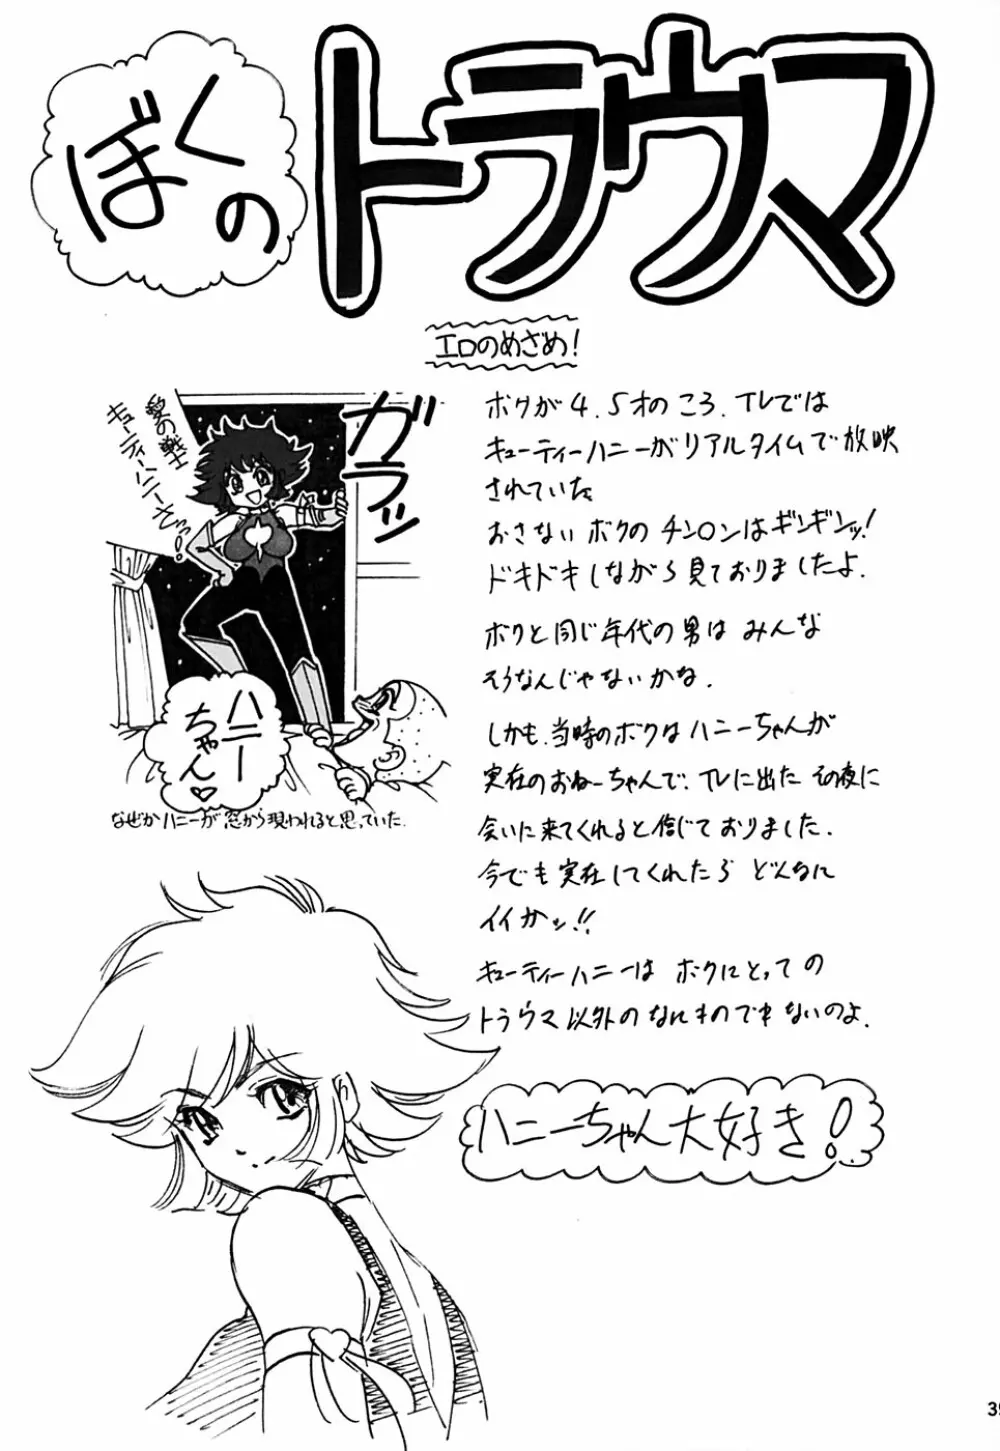 ぼくの
トラウマ
エロのめざめ!
愛の戦士
キューティーハニーさっ!
ガラッ
ハニー
ちゃん♡
なぜかハニーが窓から現われると思っていた.
ボクが4.5才のころ.TVでは
キューティーハニーがリアルタイムで放映
されていた
おさないボクのチン〇ンはギンギンッ!
ドキドキしながら見ておりましたよ.
ボクと同じ年代の男はみんな
そうなんじゃないかな.
しかも.当時のボクはハニーちゃんが
実在のおねーちゃんで、TVに出たその夜に
会いに来てくれると信じておりました.
今でも実在してくれたらどんなに
イイかッ!!
キューティーハニーはボクにとっての
トラウマ以外のなにものでもないのよ.
ハニーちゃん大好き!